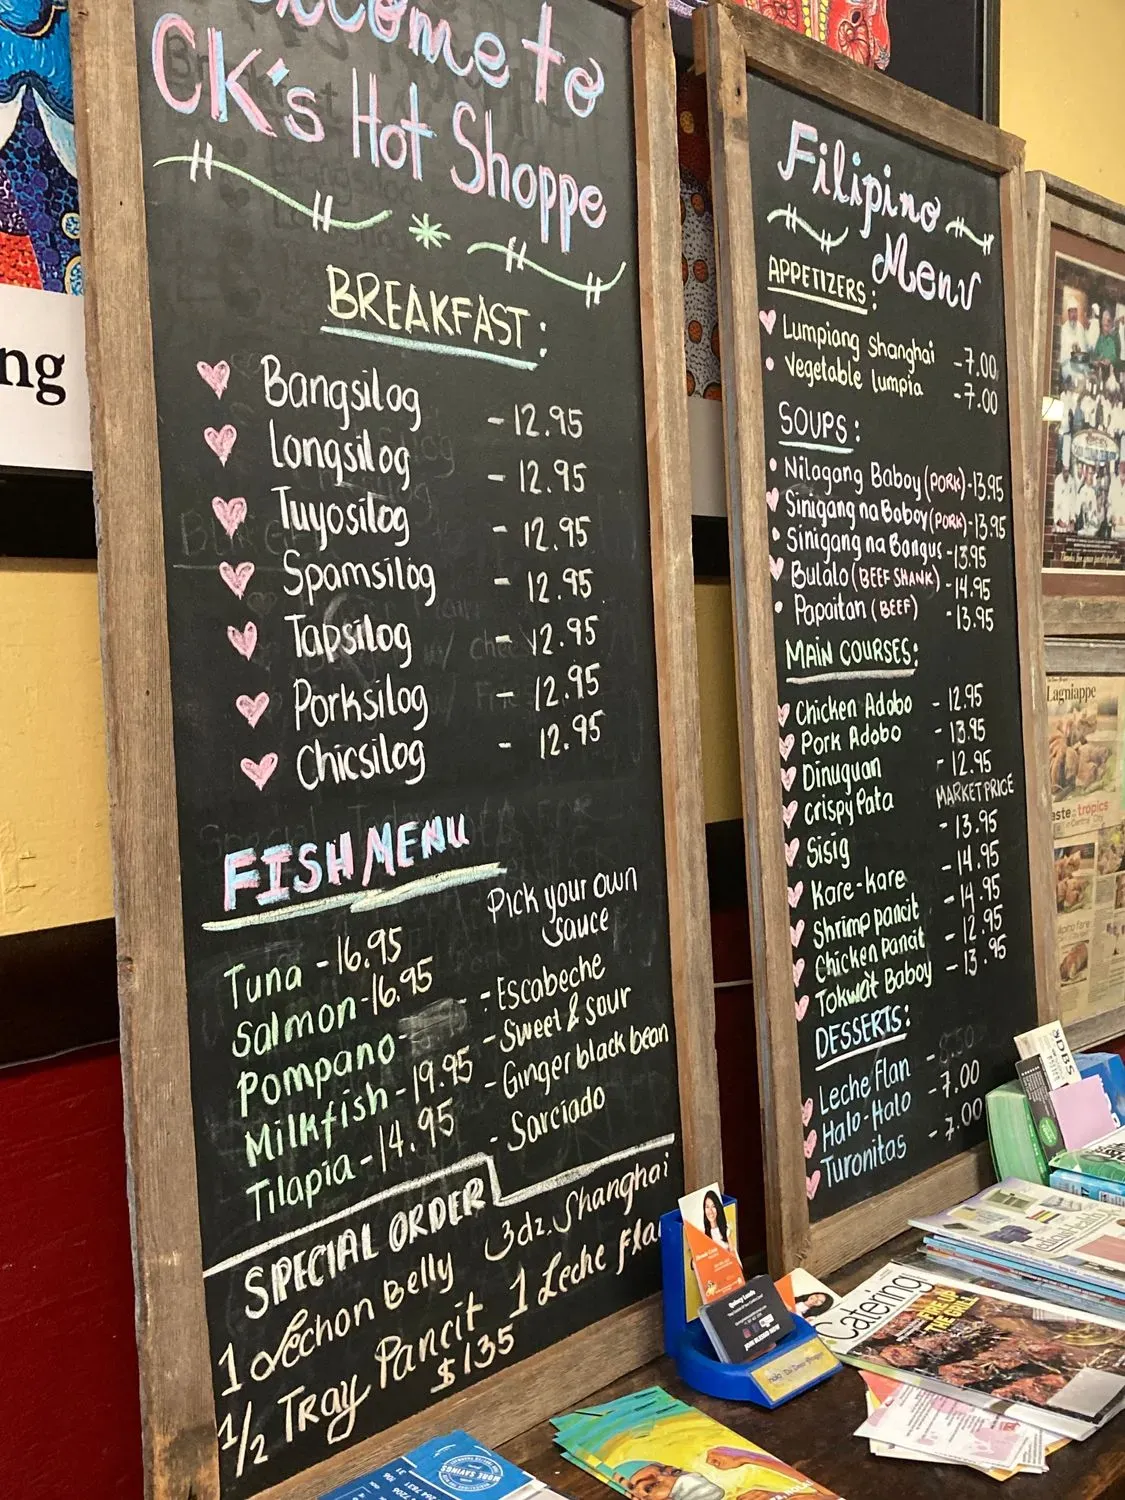 Welcome to
CK's Hot Shoppe
BREAKFAST:
Bangsilog - 12.95
Longsilog - 12.95
Tuyosilog - 12.95
Spamsilog - 12.95
Tapsilog - 12.95
Porksilog - 12.95
Chicsilog - 12.95
FISH MENU
Pick your own
sauce
Tuna - 16.95
Salmon - 16.95
Pompano -
Milkfish - 19.95
Tilapia - 14.95
- Escabeche
- Sweet & Sour
- Ginger black bean
- Sarciado
SPECIAL ORDER
1 Lechon Belly 3dz. Shanghai
1/2 Tray Pancit 1 Leche Flan
$135
Filipino
Menu
APPETIZERS:
Lumpiang Shanghai - 7.00
Vegetable lumpia - 7.00
SOUPS:
Nilagang Baboy (PORK) - 13.95
Sinigang na Baboy (PORK) - 13.95
Sinigang na Bangus - 13.95
Bulalo (BEEF SHANK) - 14.95
Papaitan (BEEF) - 13.95
MAIN COURSES:
Chicken Adobo - 12.95
Pork Adobo - 13.95
Dinuguan - 12.95
Crispy Pata MARKET PRICE
Sisig - 13.95
Kare-kare - 14.95
Shrimp pancit - 14.95
Chicken Pancit - 12.95
Tokwat Baboy - 13.95
DESSERTS:
Leche Flan - 8.50
Halo-Halo - 7.00
Turonitas - 7.00
ng
Lagniappe
Catering
MORE SAVINGS